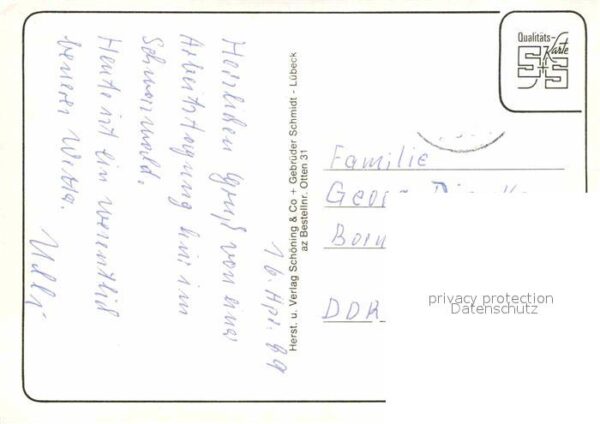 16. Apr. 89
Herzlichen Gruß von einer
Arbeitstagung hier im
Schwarzwald.
Heute ist ein wesentlich
besseres Wetter.
Herst. u. Verlag Schöning & Co + Gebrüder Schmidt - Lübeck
az Bestellnr. Otten 31
Qualitäts-
Karte
S+S
Familie
DDR
privacy protection
Datenschutz